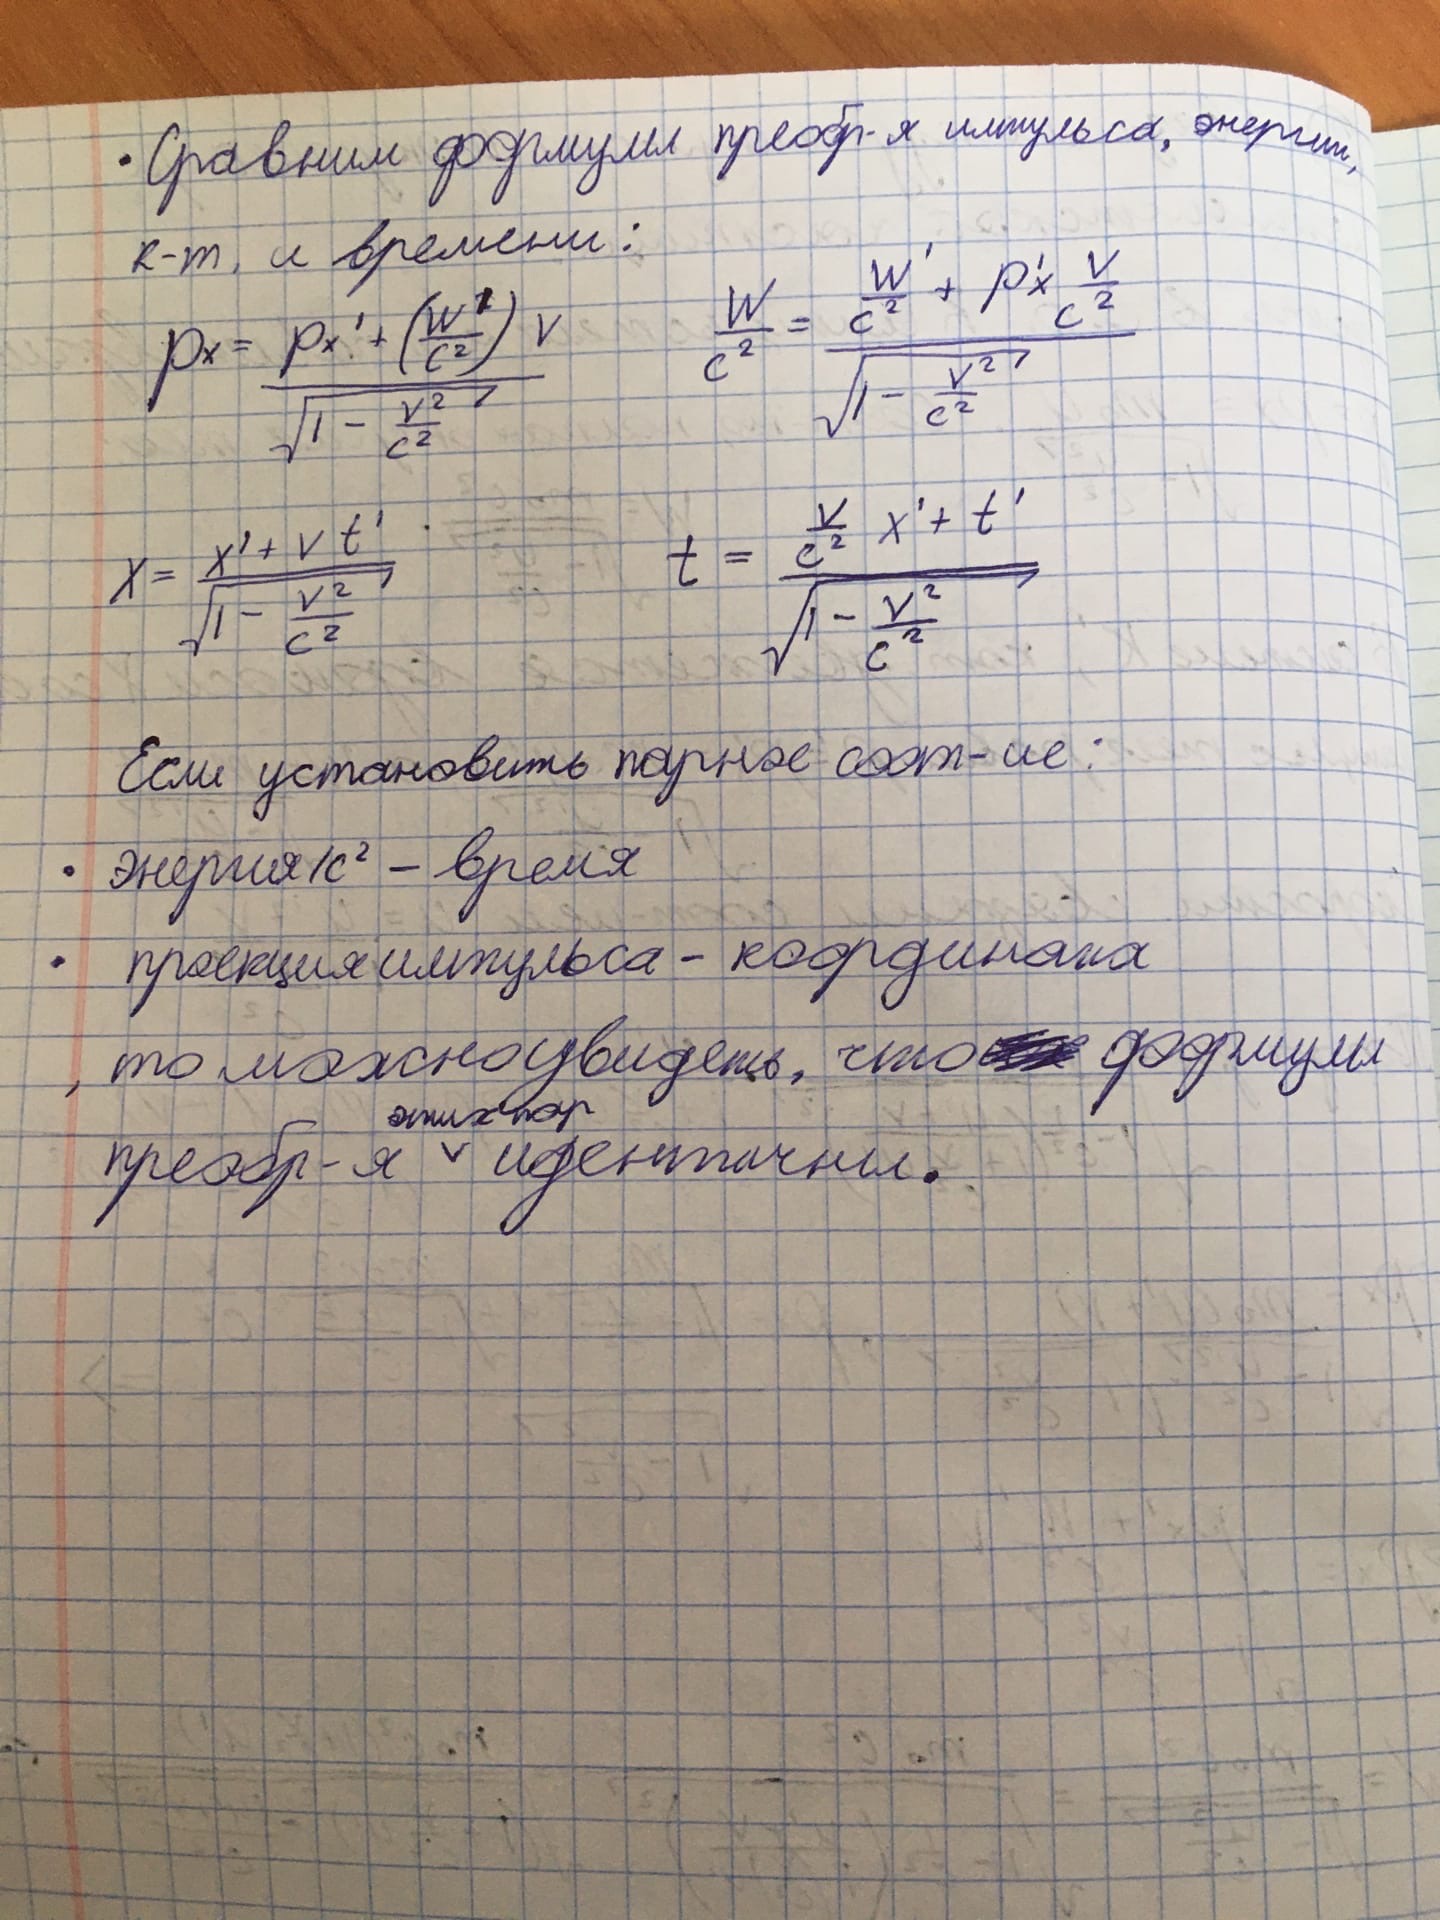 • Сравним формулы преобр-я импульса, энергии,
к-т, и времени:
px = (px' + (W'/c²) v) / √(1 - v²/c²)     W/c² = (W'/c² + p'x v/c²) / √(1 - v²/c²)
x = (x' + v t') / √(1 - v²/c²)     t = (v/c² x' + t') / √(1 - v²/c²)
Если установить парное соот-ие:
• энергия/c² – время
• проекция импульса – координата
, то можно увидеть, что формулы
этих пар
преобр-я v идентичны.